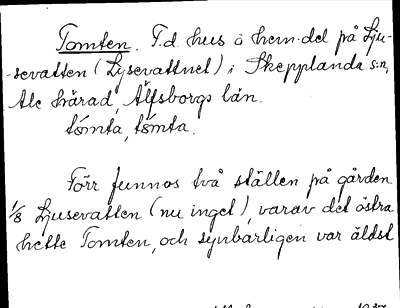 Tomten. F.d hus å hem.del på Lju-
-sevatten (Lysevattnet) i Skepplanda s:n,
Ale härad, Älfsborgs län.
tómta, tómta.
Förr funnos två ställen på gården
1/8 Ljusevatten (nu inget), varav det östra
hette Tomten, och synbarligen var äldst